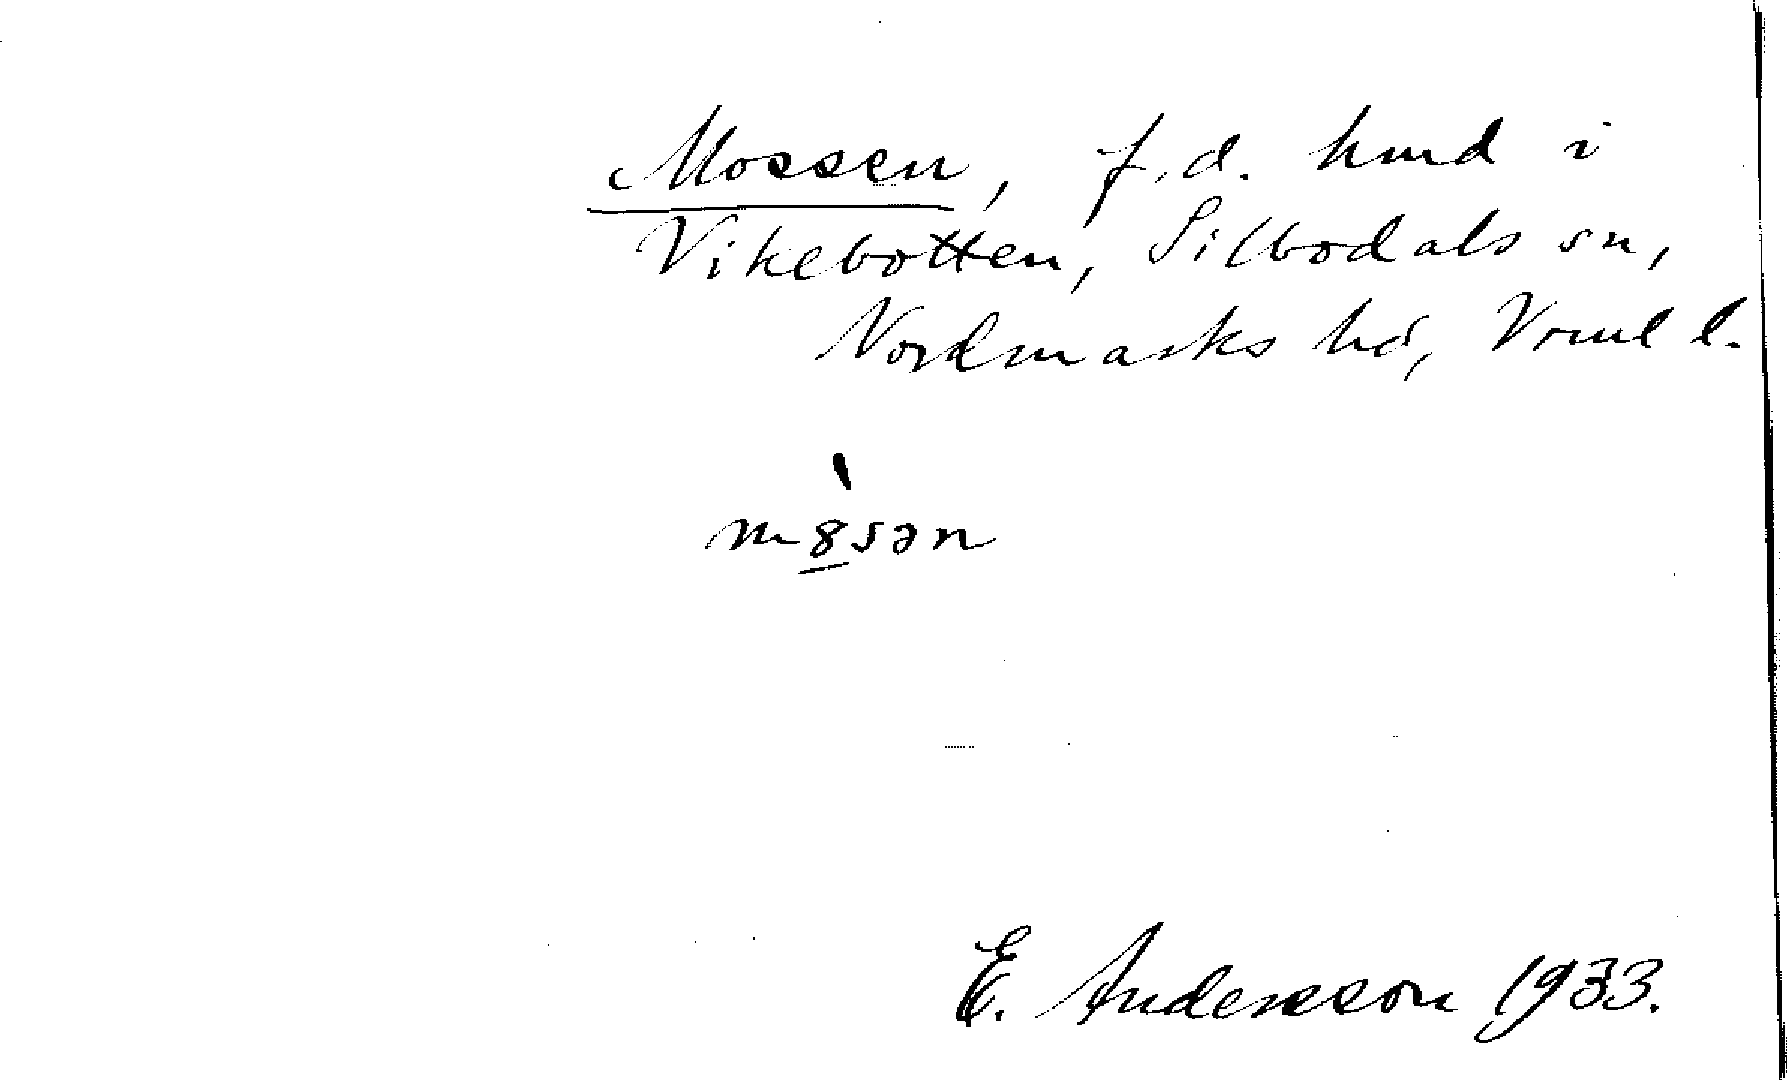 Mossen, f.d. hmd i
Vikebotten, Silbodals sn,
Nordmarks hd, Vrml l.
m8sən
E. Andersson 1933.